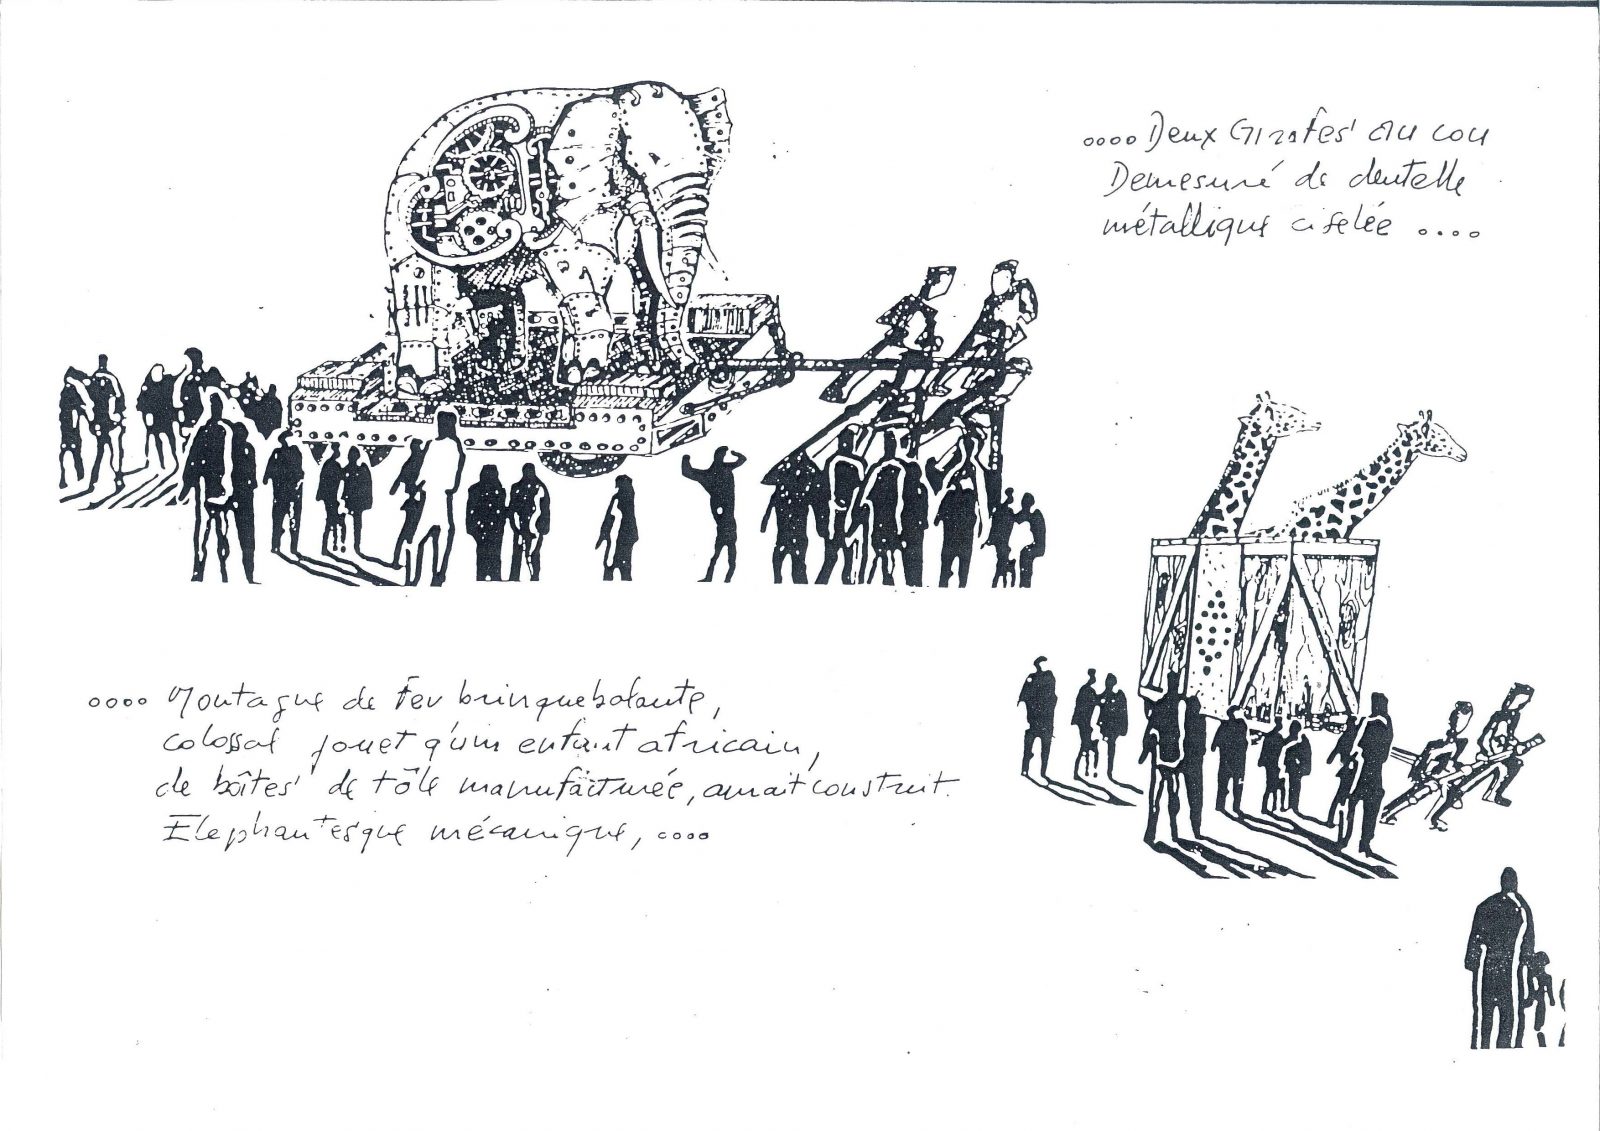 .... Deux Girafes au cou
Demesuré de dentelle
métallique ciselée ....
.... Montagne de Fer brinquebalante,
colossal jouet qu'un enfant africain,
de boîtes de tôle manufacturée, aurait construit.
Elephantesque mécanique, ....